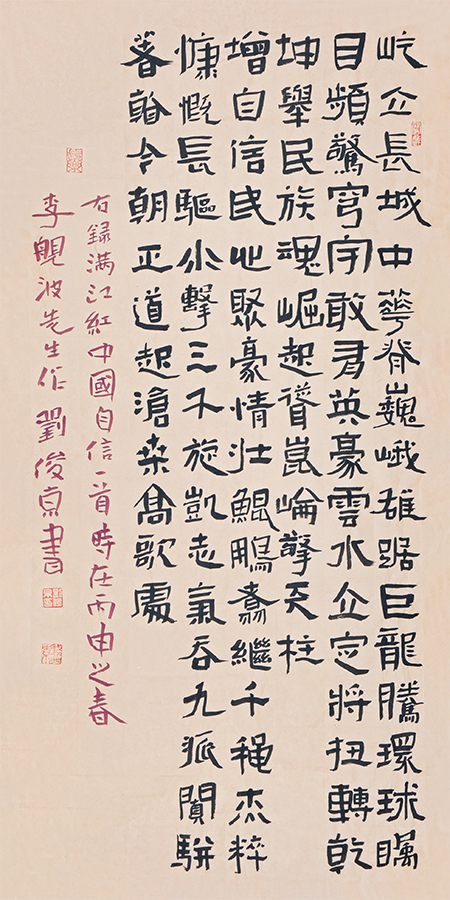 屹立長城中華脊巍峨雄踞巨龍騰環球矚
目頻驚穹宇敢君英豪雲水立定將扭轉乾
坤舉民族魂崛起聳崑崙擎天柱
增自信民心聚豪情壯鯤鵬翥繼千穐杰粹
慷慨長驅擊三凱志氣吞九駢
今朝正道起滄桑高歌處
右録满江紅中國自信一首時在丙申之春
李波先生作劉俊京書